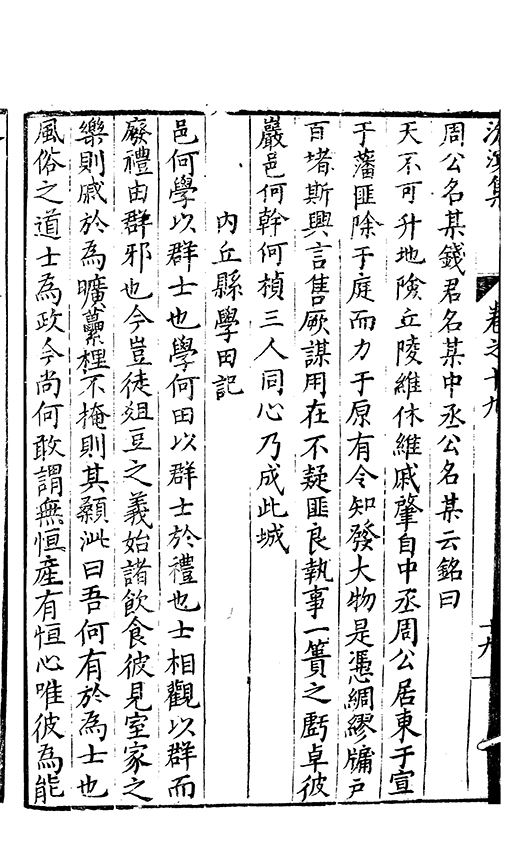 集
卷之十九
周公名某錢君名某中丞公名某云銘曰
天不可升地險丘陵維休維戚肇自中丞周公居東于宣
于藩匪除于庭而力于原有令知發大物是憑綢繆牖戶
百堵斯興言售厥謀用在不疑匪良執事一簣之虧卓彼
嚴邑何幹何楨三人同心乃成此城
內丘縣學田記
邑何學以群士也學何田以群士於禮也士相觀以群而
廢禮由群邪也今豈徒俎豆之義始諸飲食彼見室家之
樂則戚於為曠虆梩不掩則其顙泚曰吾何有於為士也
風俗之道士為政今尚何敢謂無恒產有恒心唯彼為能